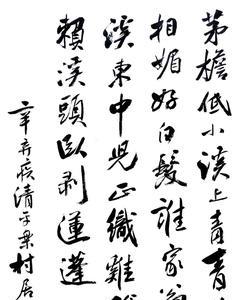 茅檐低小溪上青青
相媚好白髮誰家翁
溪東中兒正織雞
賴溪頭臥剥蓮蓬
辛弃疾清平樂村居